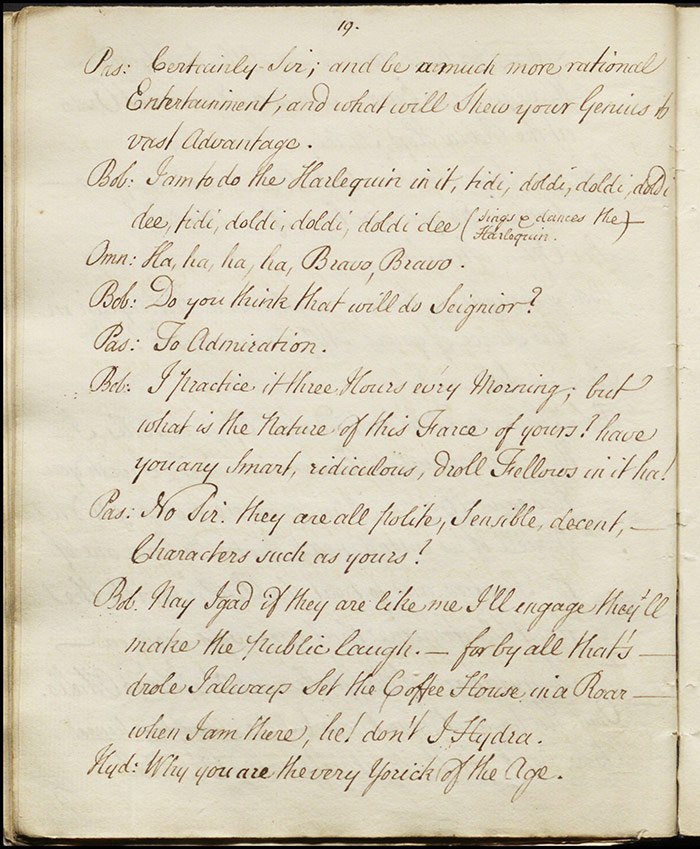 19.
Pas: Certainly Sir; and be a much more rational
Entertainment, and what will Shew your Genius to
vast Advantage.
Bob: I am to do the Harlequin in it, tidi, doldi, doldi, doldi
dee, tidi, doldi, doldi, doldi dee (sings & dances the
Harlequin.)
Omn: Ha, ha, ha, ha, Bravo, Bravo.
Bob: Do you think that will do Seignior?
Pas: To Admiration.
Bob: I practice it three Hours ev'ry Morning; but
what is the Nature of this Farce of yours? have
you any Smart, ridiculous, droll Fellows in it ha!
Pas: No Sir. they are all polite, Sensible, decent, —
Characters such as yours!
Bob. Nay Igad if they are like me I'll engage they'll
make the Public laugh. — for by all that's —
drole I always Set the Coffee House in a Roar —
when I am there, he! don't I Hydra.
Hyd: Why you are the very Yorick of the Age.